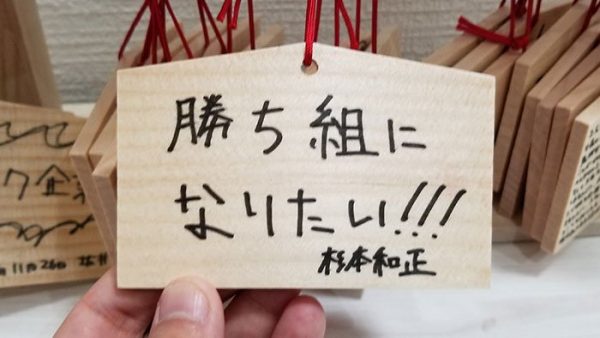 勝ち組に
なりたい!!!
杉本和正
ク企業
11月26日